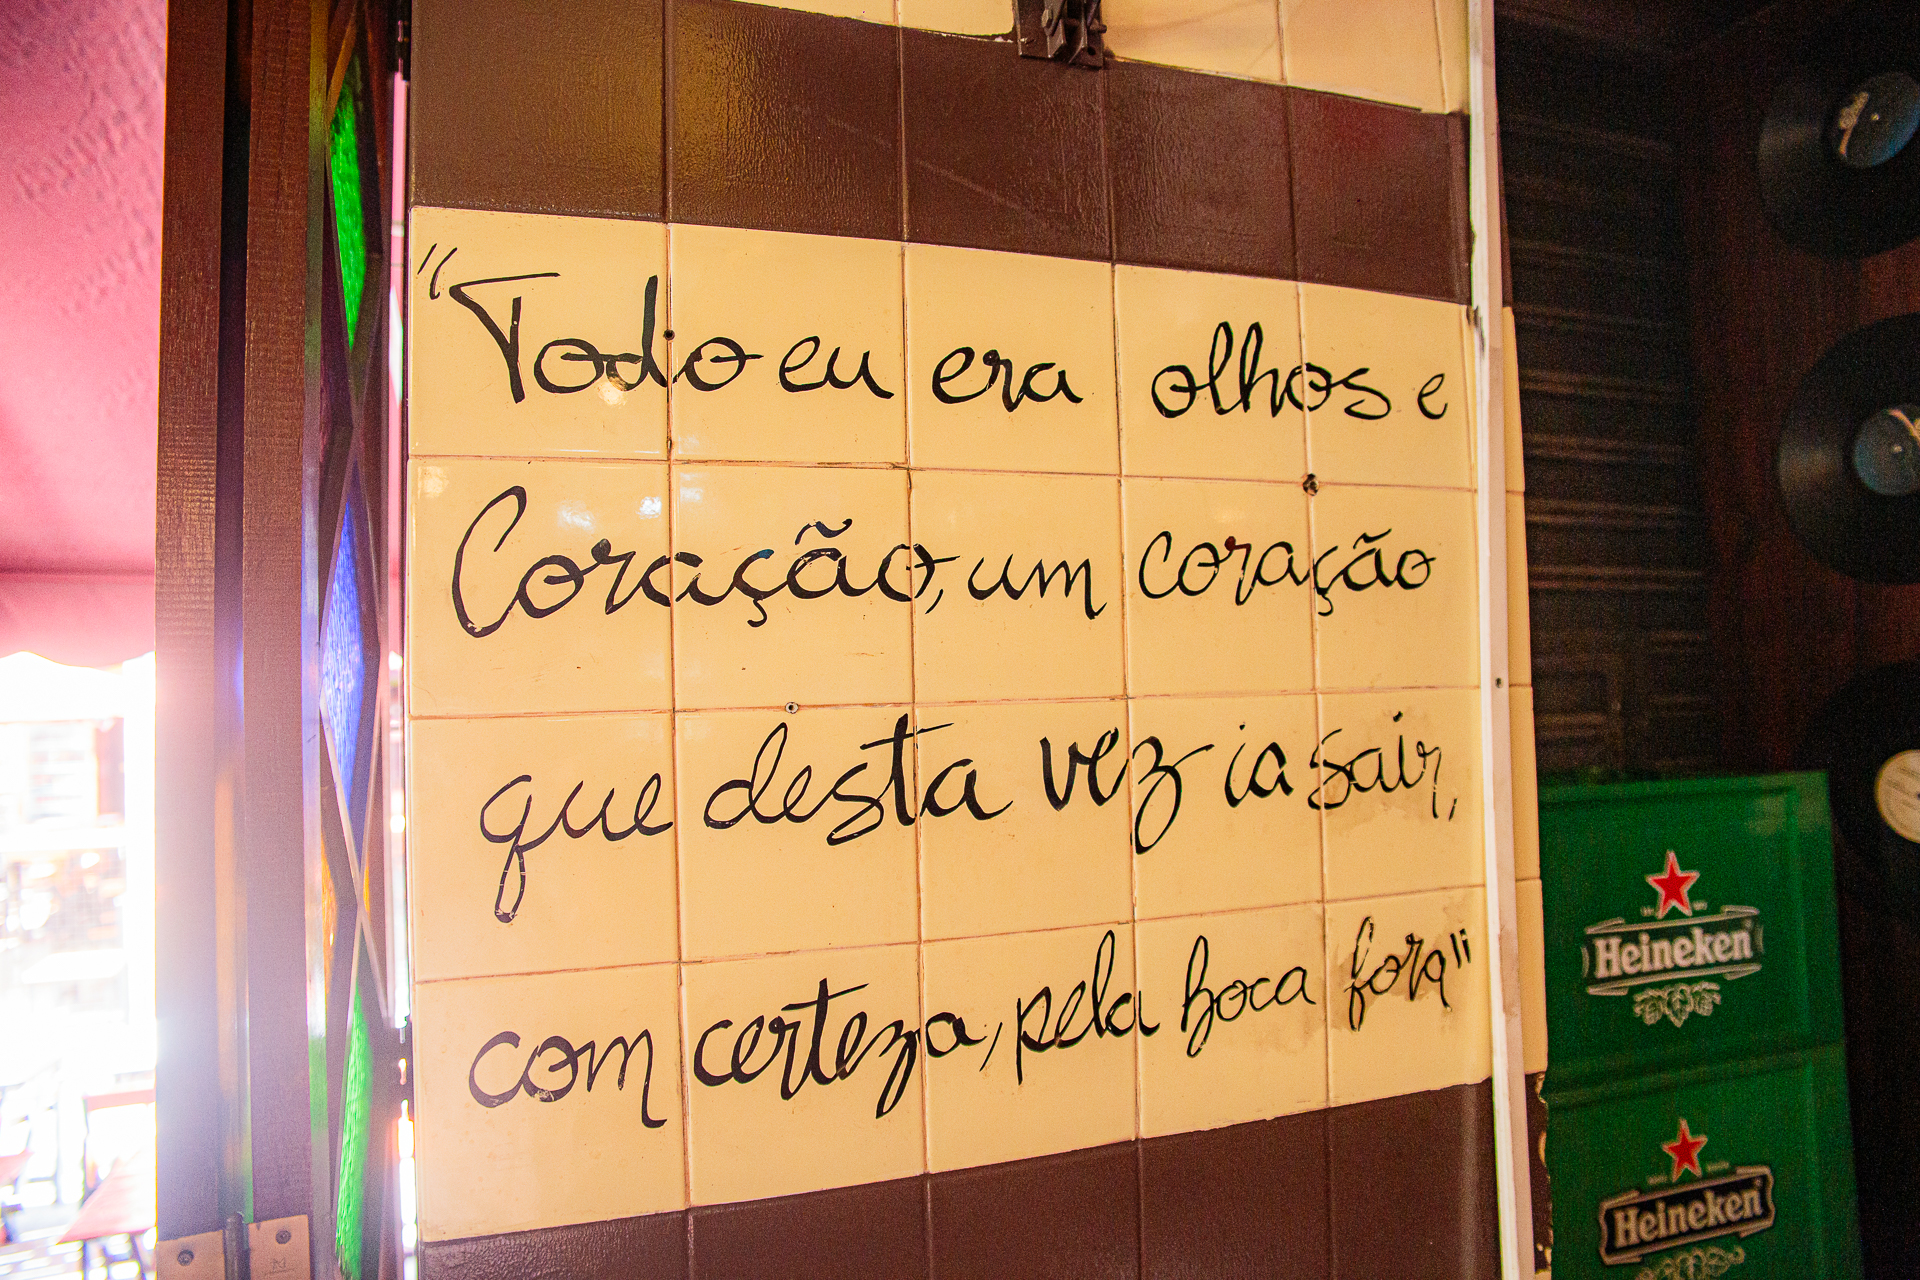 "Todo eu era olhos e
Coração, um coração
que desta vez ia sair,
com certeza, pela boca fora"
Heineken
Heineken